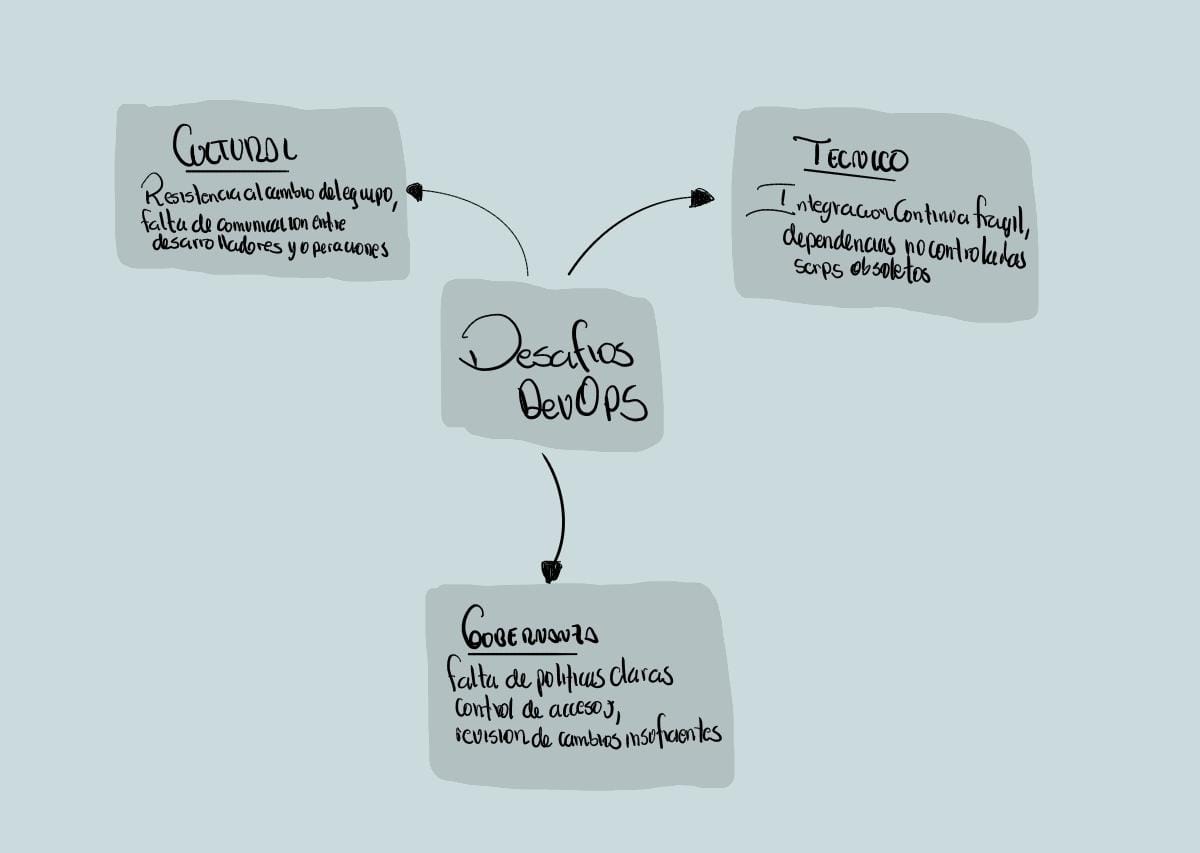 CULTURAL
Resistencia al cambio del equipo,
falta de comunicacion entre
desarrolladores y operaciones
TECNICO
Integracion Continua fragil,
dependencias no controladas
scrps obsoletos
Desafios
DevOps
GOBERNANZA
falta de politicas claras
control de accesos,
revision de cambios insuficientes